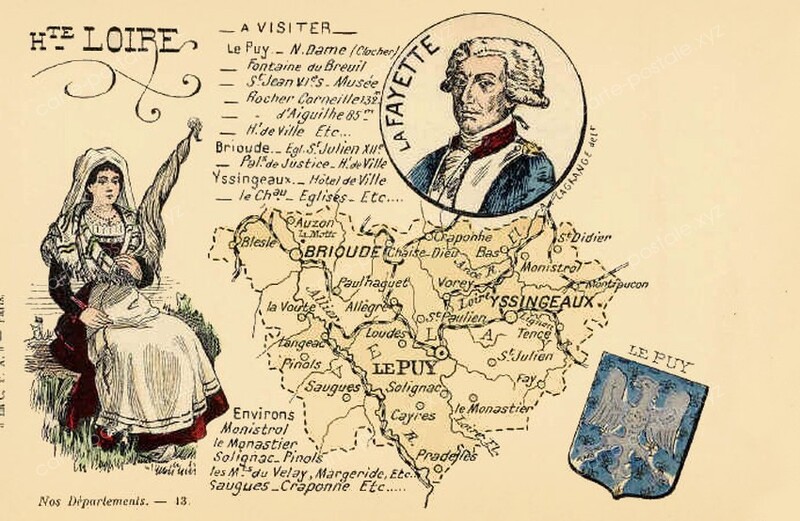 Hᵀᴱ LOIRE
_ A VISITER _
Le Puy _ N. Dame (Clocher)
_ Fontaine du Breuil
_ Sᵗ Jean VIᵉ s. Musée
_ Rocher Corneille 132ᵐ
_ " d'Aiguilhe 85ᵐ
_ H. de Ville Etc...
Brioude _ Egl. Sᵗ Julien XIIᵉ
_ Palˢ de Justice _ H. de Ville
Yssingeaux _ Hôtel de Ville
_ le Chᵃᵘ _ Eglises _ Etc....
LA FAYETTE
A. LAGRANGE delᵗ
Auzon
la Motte
Blesle
BRIOUDE
Chaise-Dieu
Craponne
Bas
Sᵗ Didier
Monistrol
Montfaucon
Ance R.
Vorey
Paulhaguet
Allègre
Loire
YSSINGEAUX
la Voute
Allier
Sᵗ Paulien
Lignon
Tence
Langeac
Loudes
Pinols
LE PUY
Sᵗ Julien
Fay
Saugues
Solignac
le Monastier
Cayres
Loire Fl.
Pradelles
Environs
Monistrol
le Monastier
Solignac _ Pinols
les Mᵗˢ du Velay, Margeride, Etc...
Saugues _ Craponne Etc.....
LE PUY
Nos Départements. — 13.